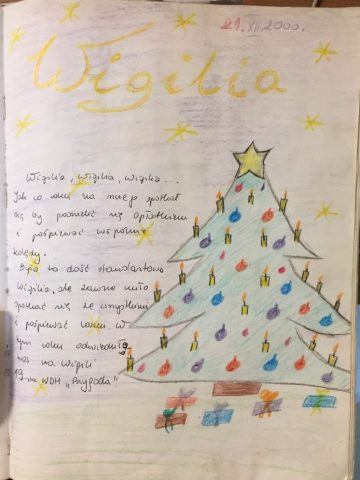 21.XII.2000.
Wigilia
Wigilia, wigilia, wigilia...
Jak co roku na nasza spotkał
się by podzielić się opłatkiem
i pośpiewać wspólnie
kolędy.
Była to dość standardowa
Wigilia, ale zawsze miło
spotkać się ze wszystkimi
i pośpiewać razem w
tym roku odwiedziła
nas na Wigilii
19-na WDH „Przygoda"